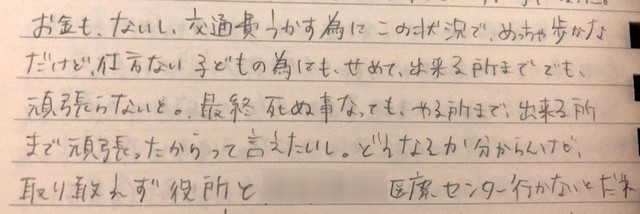 お金も、ないし、交通費うかす為に この状況で、めっちゃ歩かな
だけど、仕方ない 子どもの為にも、せめて、出来る所まででも、
頑張らないと。最終 死ぬ事なっても、やる所まで、出来る所
まで頑張ったからって言えたいし。どんなるか分からんけど、
取り敢えず 役所と 医療センター行かないとだね